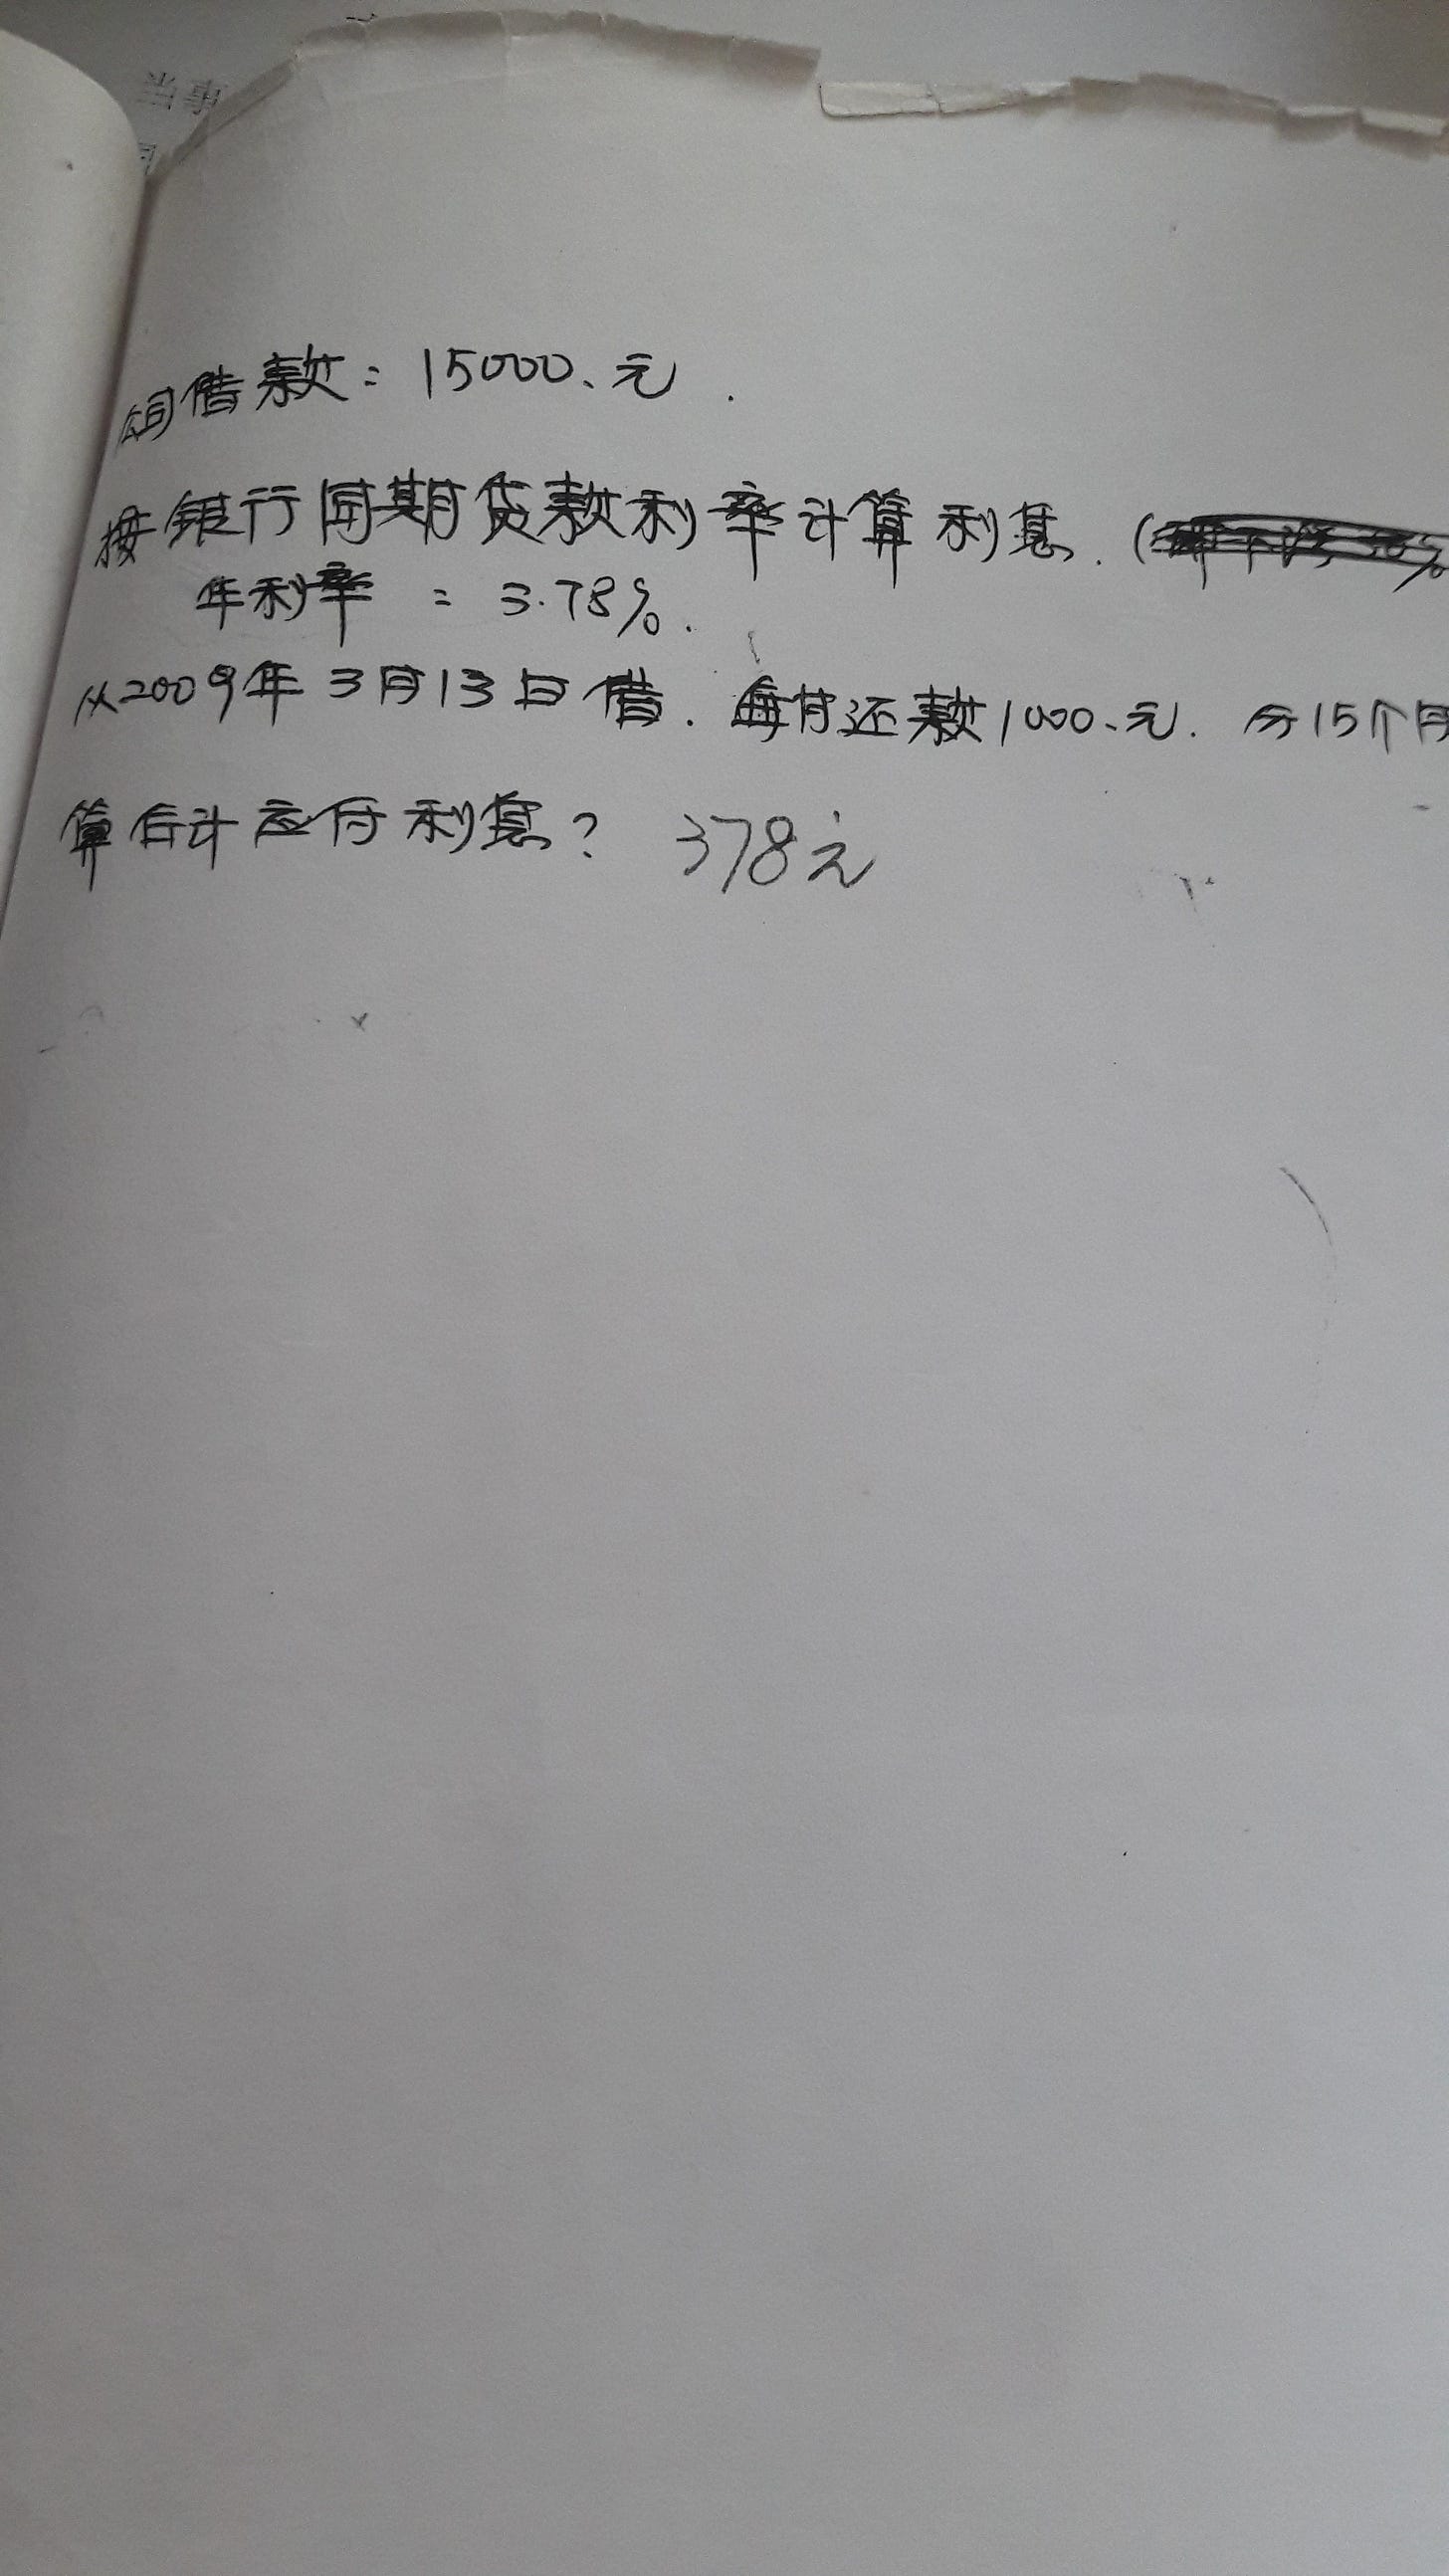 当事
间借款：15000、元．
按银行同期贷款利率计算利息．(
年利率 = 3.78%．
从2009年3月13日借．每月还款1000、元．分15个月
算合计应付利息？ 378元